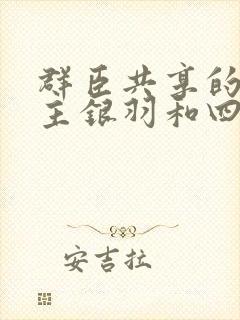 群臣共享的
主银羽和四
安吉拉